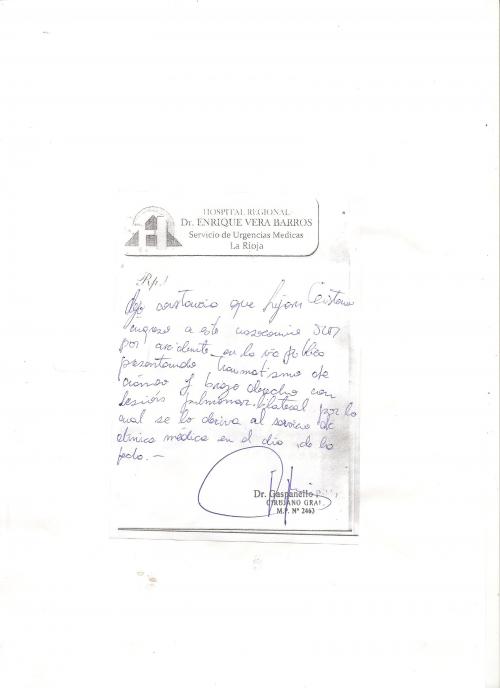 HOSPITAL REGIONAL
Dr. ENRIQUE VERA BARROS
Servicio de Urgencias Medicas
La Rioja
Rp.
Dejo constancia que Lujan Cristian
ingreso a este nosocomio
por accidente en la via publica
presentando traumatismo de
craneo y brazo derecho con
lesión pulmonar bilateral por lo
cual se lo deriva al servicio de
clinica médica en el dia de la
fecha.-
Dr. Gaspanello
CIRUJANO GRAL
M.P. Nº 2463